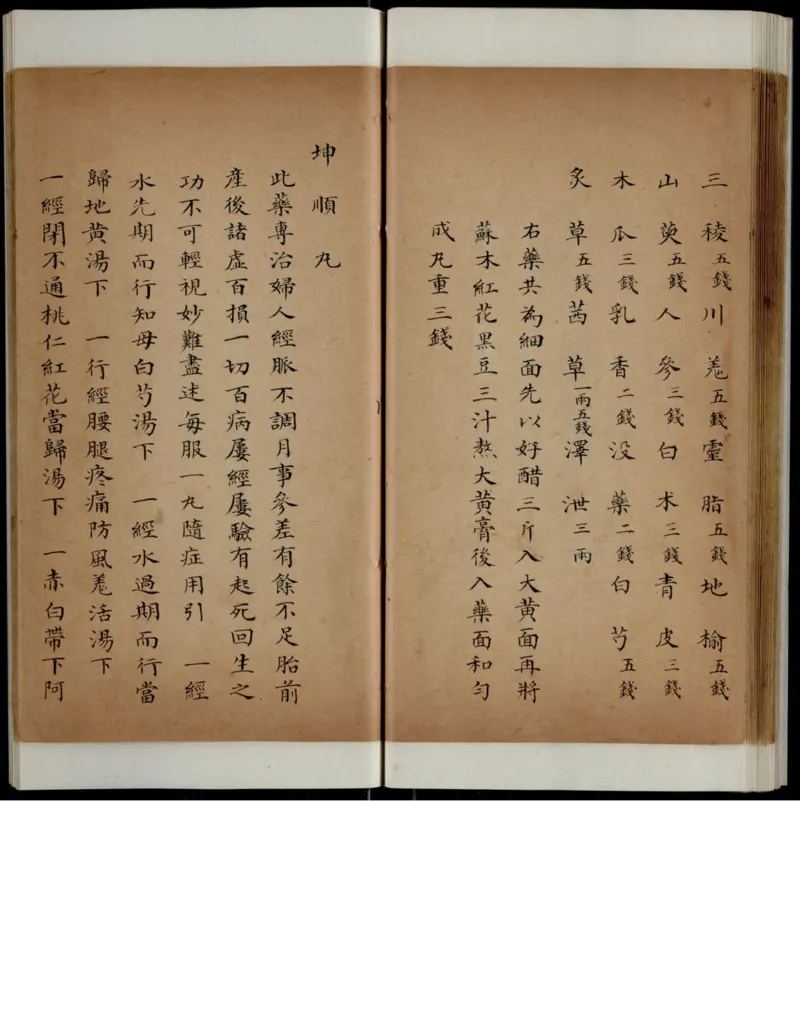 三稜五錢川羗五錢霊脂五錢地榆五錢
山萸五錢人參三錢白术三錢青皮三錢
木瓜三錢乳香二錢没藥二錢白芍五錢
炙草五錢茜草一兩五錢澤泄三兩
右藥共為細面先以好醋三斤入大黄面再將
蘇木紅花黑豆三汁熬大黄膏後入藥面和匀
成丸重三錢
坤順丸
此藥專治婦人經脈不調月事參差有餘不足胎前
產後諸虛百損一切百病屢經屢驗有起死回生之
功不可輕視妙難盡述每服一丸隨症用引 一經
水先期而行知母白芍湯下 一經水過期而行當
歸地黄湯下 一行經腰腿疼痛防風羗活湯下
一經閉不通桃仁紅花當歸湯下 一赤白帶下阿